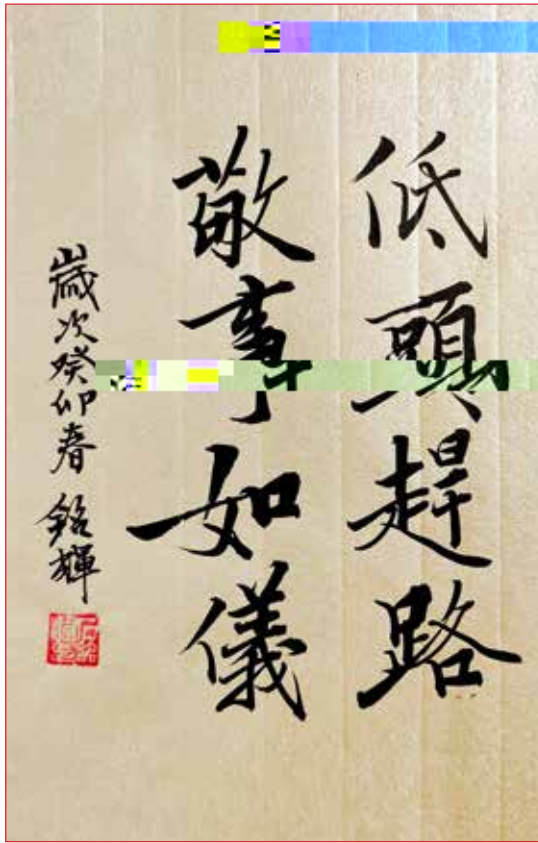 低頭趕路
敬事如儀
歲次癸卯春 銘輝